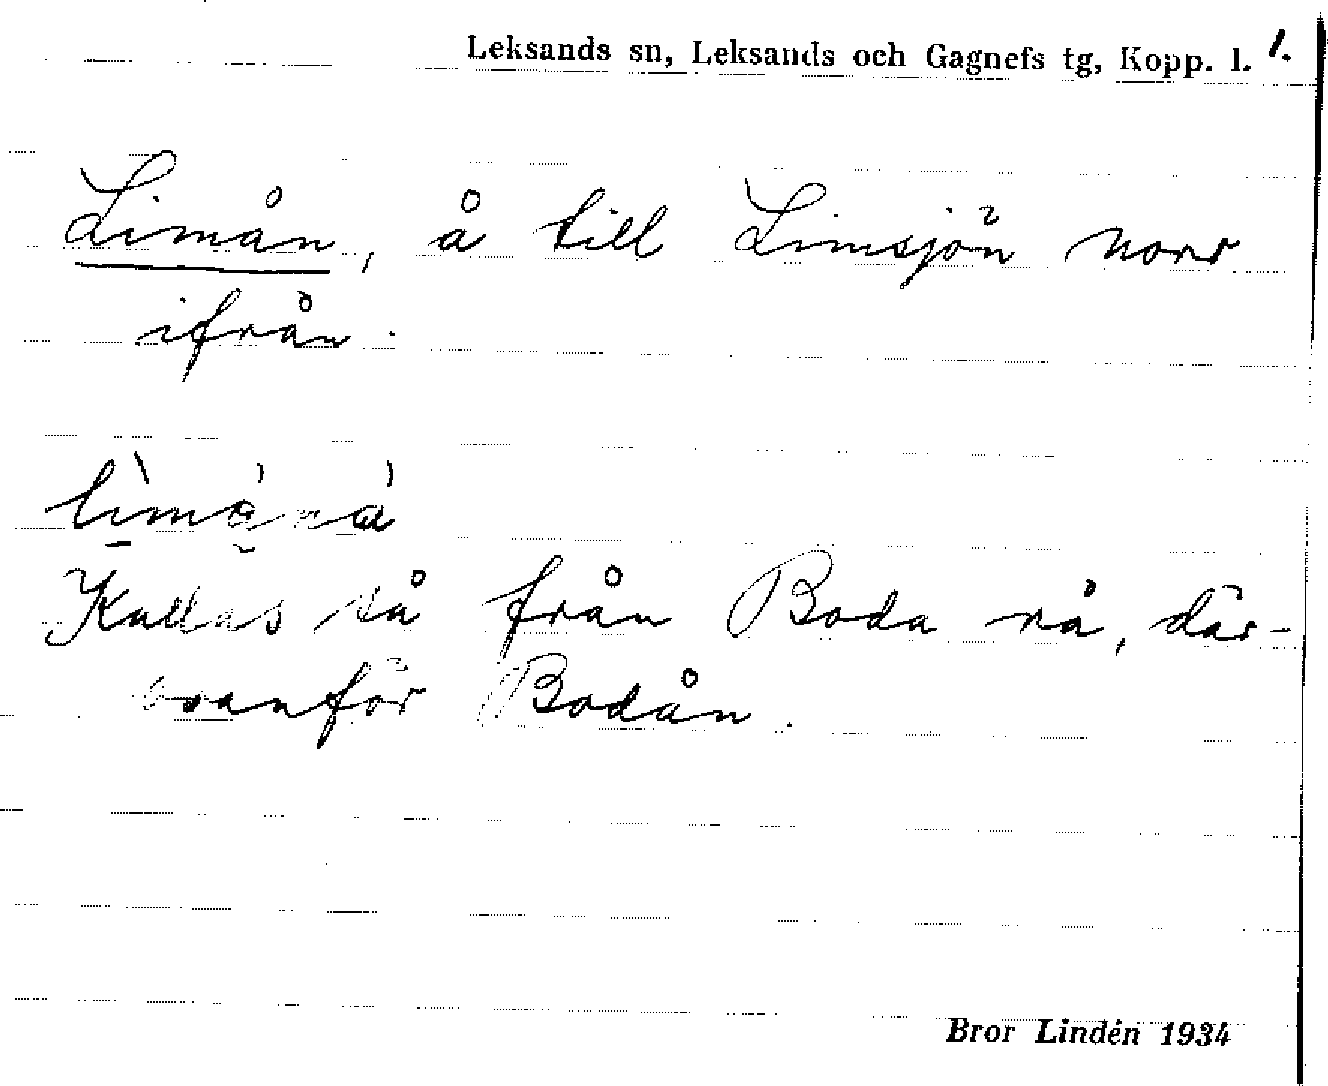 Leksands sn, Leksands och Gagnefs tg, Kopp. l. 1.
Limån, å till Limsjön norr
ifrån.
Kallas så från Boda rå, där-
ovanför Bodån.
Bror Lindén 1934